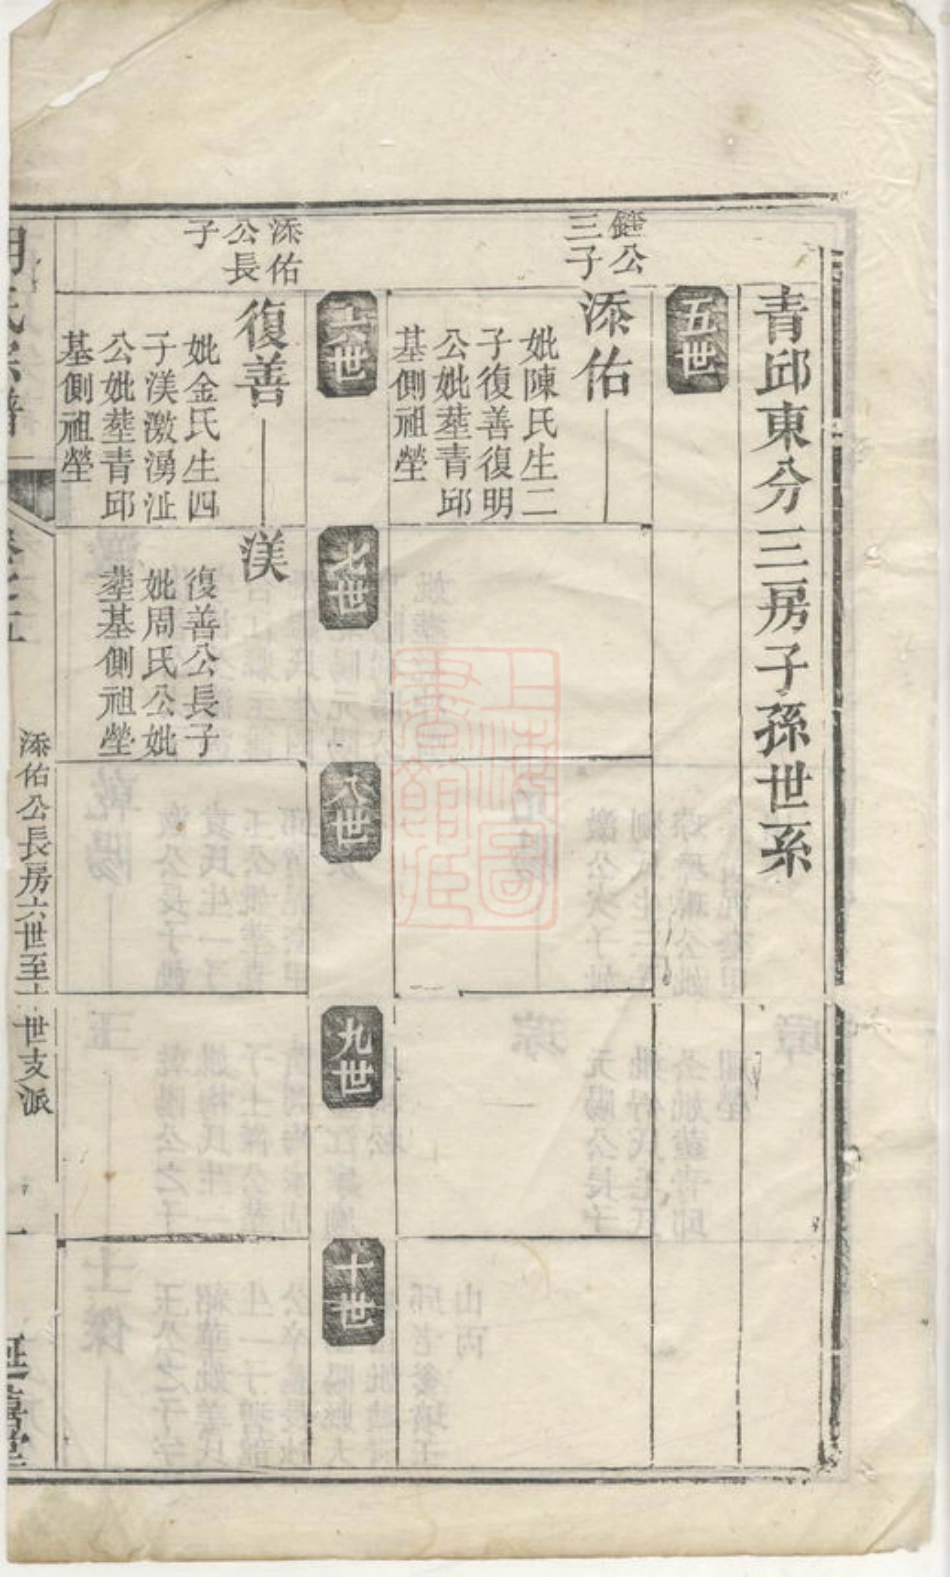 青邱東分三房子孫世系
五世
鏗公
三子
添佑
妣陳氏生二
子復善復明
公妣塟青邱
基側祖塋
六世
七世
八世
九世
十世
添佑
公長
子
復善
妣金氏生四
子渼激湧沚
公妣塟青邱
基側祖塋
渼
復善公長子
妣周氏公妣
塟基側祖塋
氏宗譜
卷之五
添佑公長房六世至十世支派
一
延禧堂
上海圖書館藏